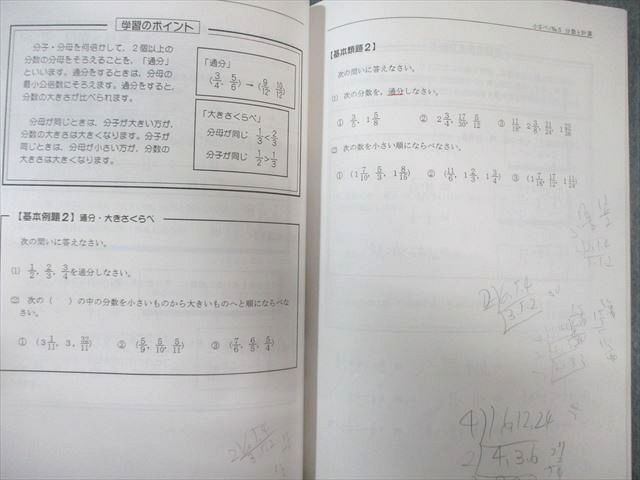 学習のポイント
分子・分母を何倍かして、2個以上の
分数の分母をそろえることを、「通分」
といいます。通分をするときは、分母の
最小公倍数にそろえます。通分をすると、
分数の大きさが比べられます。
分母が同じときは、分子が大きい方が、
分数の大きさは大きくなります。分子が
同じときは、分母が小さい方が、分数の
大きさは大きくなります。
「通分」
(3/4, 5/6) → (9/12, 10/12)
「大きさくらべ」
分母が同じ 1/3<2/3
分子が同じ 1/2>1/3
【基本例題2】通分・大きさくらべ
次の問いに答えなさい。
(1) 1/2, 2/3, 3/4を通分しなさい。
(2) 次の( )の中の分数を小さいものから大きいものへと順にならべな
さい。
① (3 1/11, 3, 32/11) ② (5/9, 5/10, 5/11) ③ (7/6, 6/5, 5/4)
分数と計算
【基本類題2】
次の問いに答えなさい。
(1) 次の分数を、通分しなさい。
① 3/5, 1 5/8 ② 2 3/4, 17/30, 5/12 ③
(2) 次の数を小さい順にならべなさい。
① (1 7/10, 5/3, 1 8/15) ② (11/6, 1 2/3, 1 3/4) ③
4)16,12,24
2)4,3,6